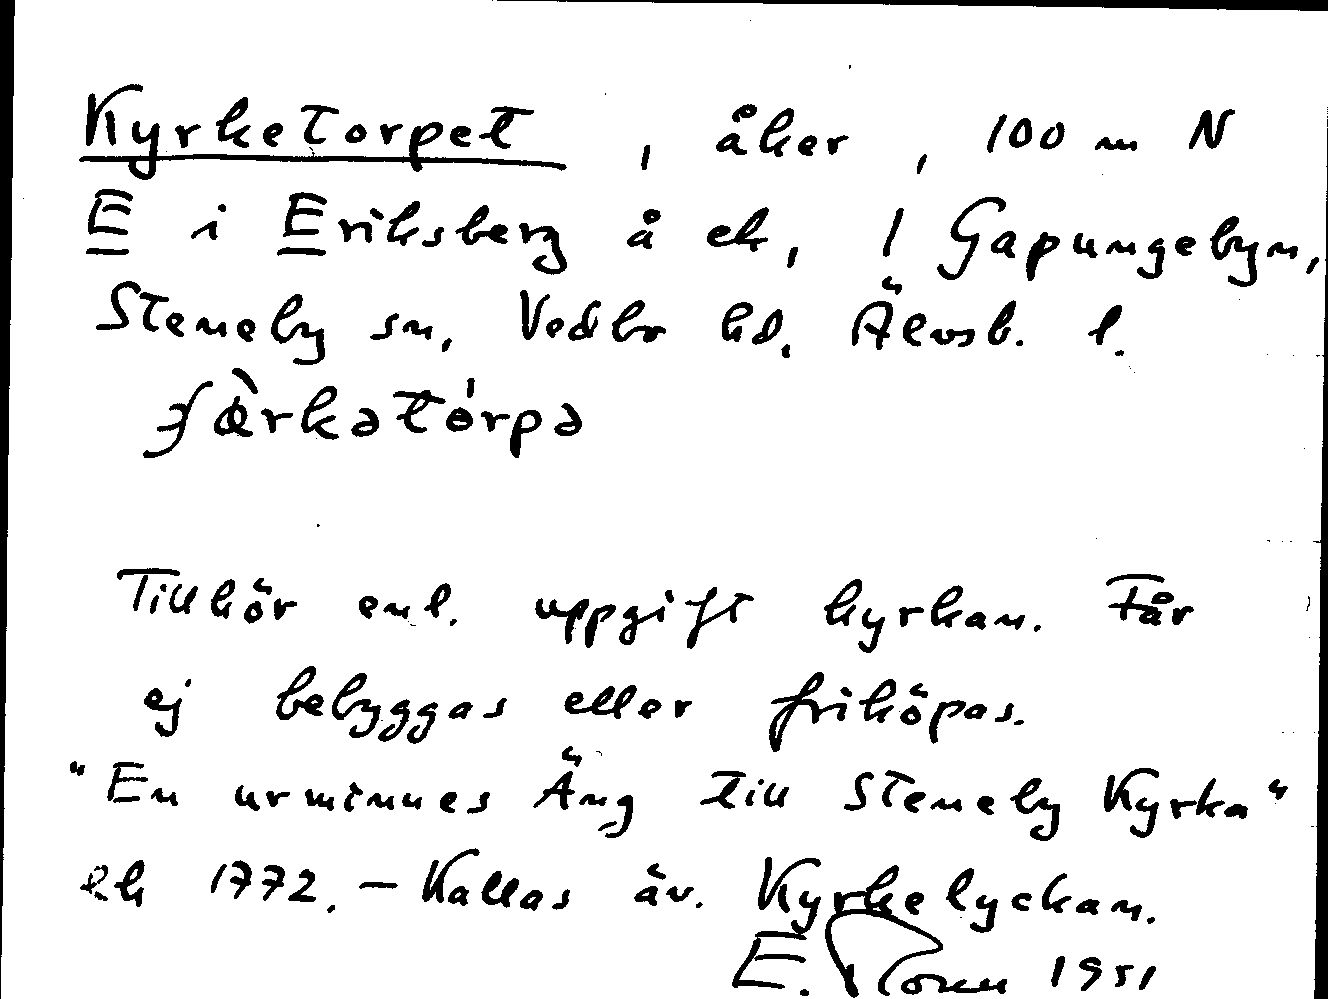 Kyrketorpet, åker, 100 m N
E i Eriksberg å ek, / Gapungebyn,
Steneby sn, Vedbo hd. Älvsb. l.
ʃæ̀rkətórpə
Tillhör enl. uppgift kyrkan. Får
ej bebyggas eller friköpas.
"En urminnes Äng till Steneby Kyrka"
ek 1772. – Kallas äv. Kyrkelyckan.
E. 1951